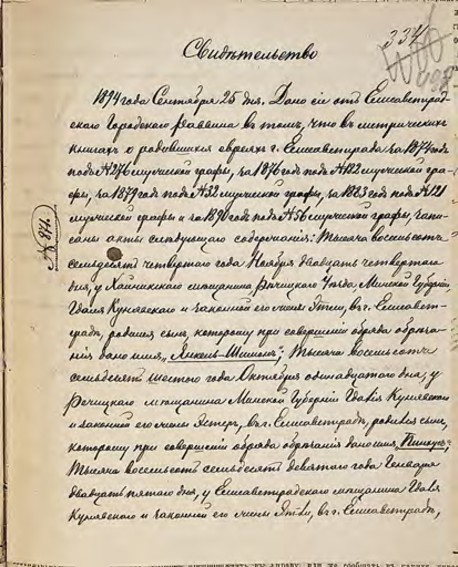 334
Свидѣтельство
1894 года Сентября 25 дня. Дано сіе отъ Елисаветград-
скаго Городскаго Раввина въ томъ, что въ метрическихъ
книгахъ о родившихся евреяхъ г. Елисаветграда за 1874 годъ
подъ № 276 мужеской графы, за 1876 годъ подъ № 182 мужеской гра-
фы, за 1879 годъ подъ № 32 мужеской графы, за 1883 годъ подъ № 121
мужеской графы и за 1890 годъ подъ № 56 мужеской графы, запи-
саны акты слѣдующаго содержанія: Тысяча восемьсотъ
№ 871.
семьдесятъ четвертаго года Ноября двадцать четвертаго
дня, у мѣщанина Рѣчицкаго Уѣзда Минской Губерніи,
Гдаля Кунявскаго и законной его жены Этли, въ г. Елисавет-
градѣ, родился сынъ, которому при совершеніи обряда обрѣза-
нія дано имя „Янкель-Шимонъ"; Тысяча восемьсотъ
семьдесятъ шестого года Октября одинадцатаго дня, у
Рѣчицкаго мѣщанина Минской Губерніи Гдалія Кунявскаго
и законной его жены Эстеръ, въ г. Елисаветградѣ, родился сынъ,
которому при совершеніи обряда обрѣзанія дано имя „Пинкусъ";
Тысяча восемьсотъ семьдесятъ девятаго года Генваря
двадцать пятаго дня, у Елисаветградскаго мѣщанина Гдаля
Кунявскаго и законной его жены Этли, въ г. Елисаветградѣ,